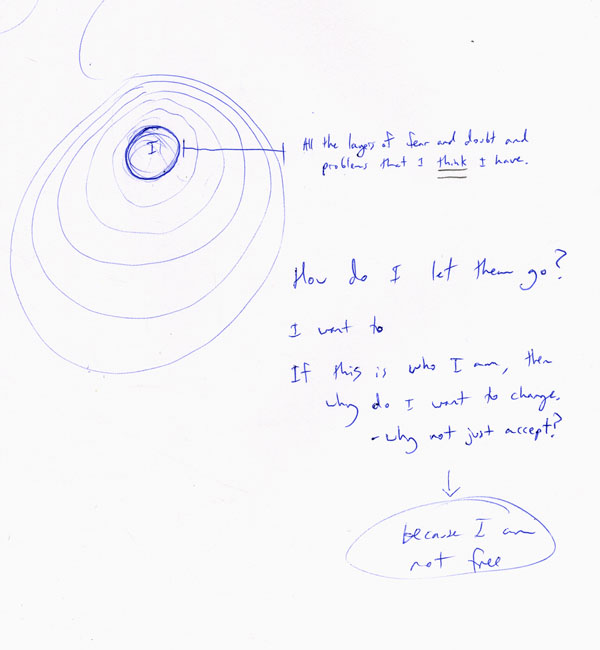 I
All the layers of fear and doubt and
problems that I think I have.
How do I let them go?
I want to
If this is who I am, then
why do I want to change.
- why not just accept?
because I am
not free